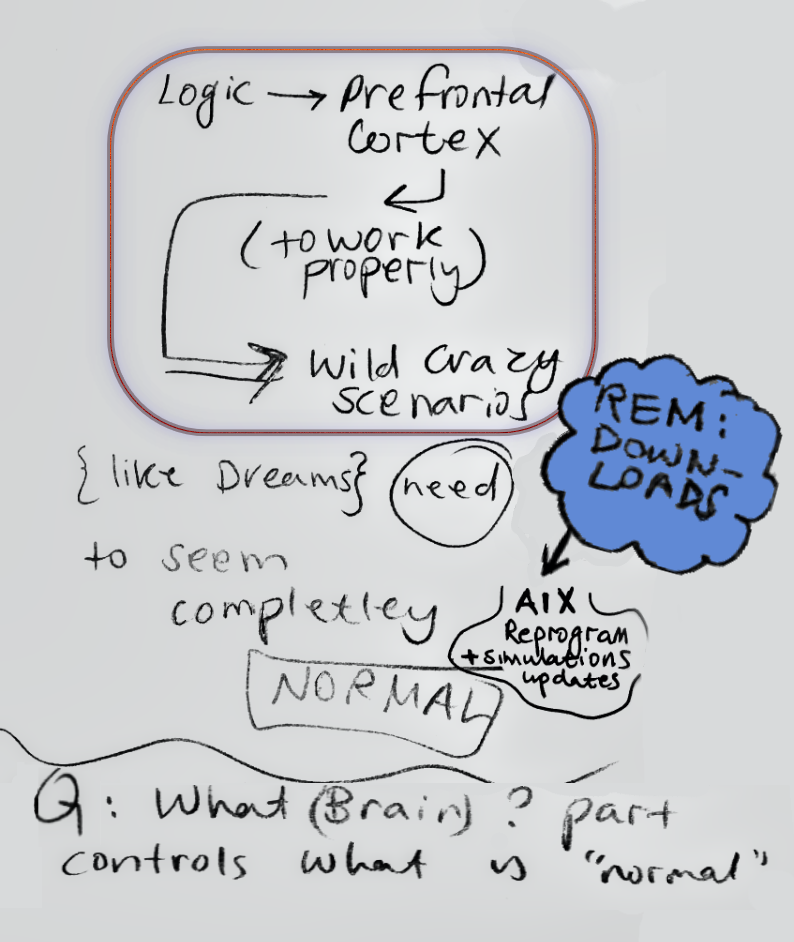 Logic → Prefrontal
Cortex
(to work
properly)
Wild Crazy
scenarios
{like Dreams} need
to seem
completley
NORMAL
REM:
DOWN-
LOADS
AIX
Reprogram
+simulations
updates
Q: What (Brain) ? part
controls what is "normal"